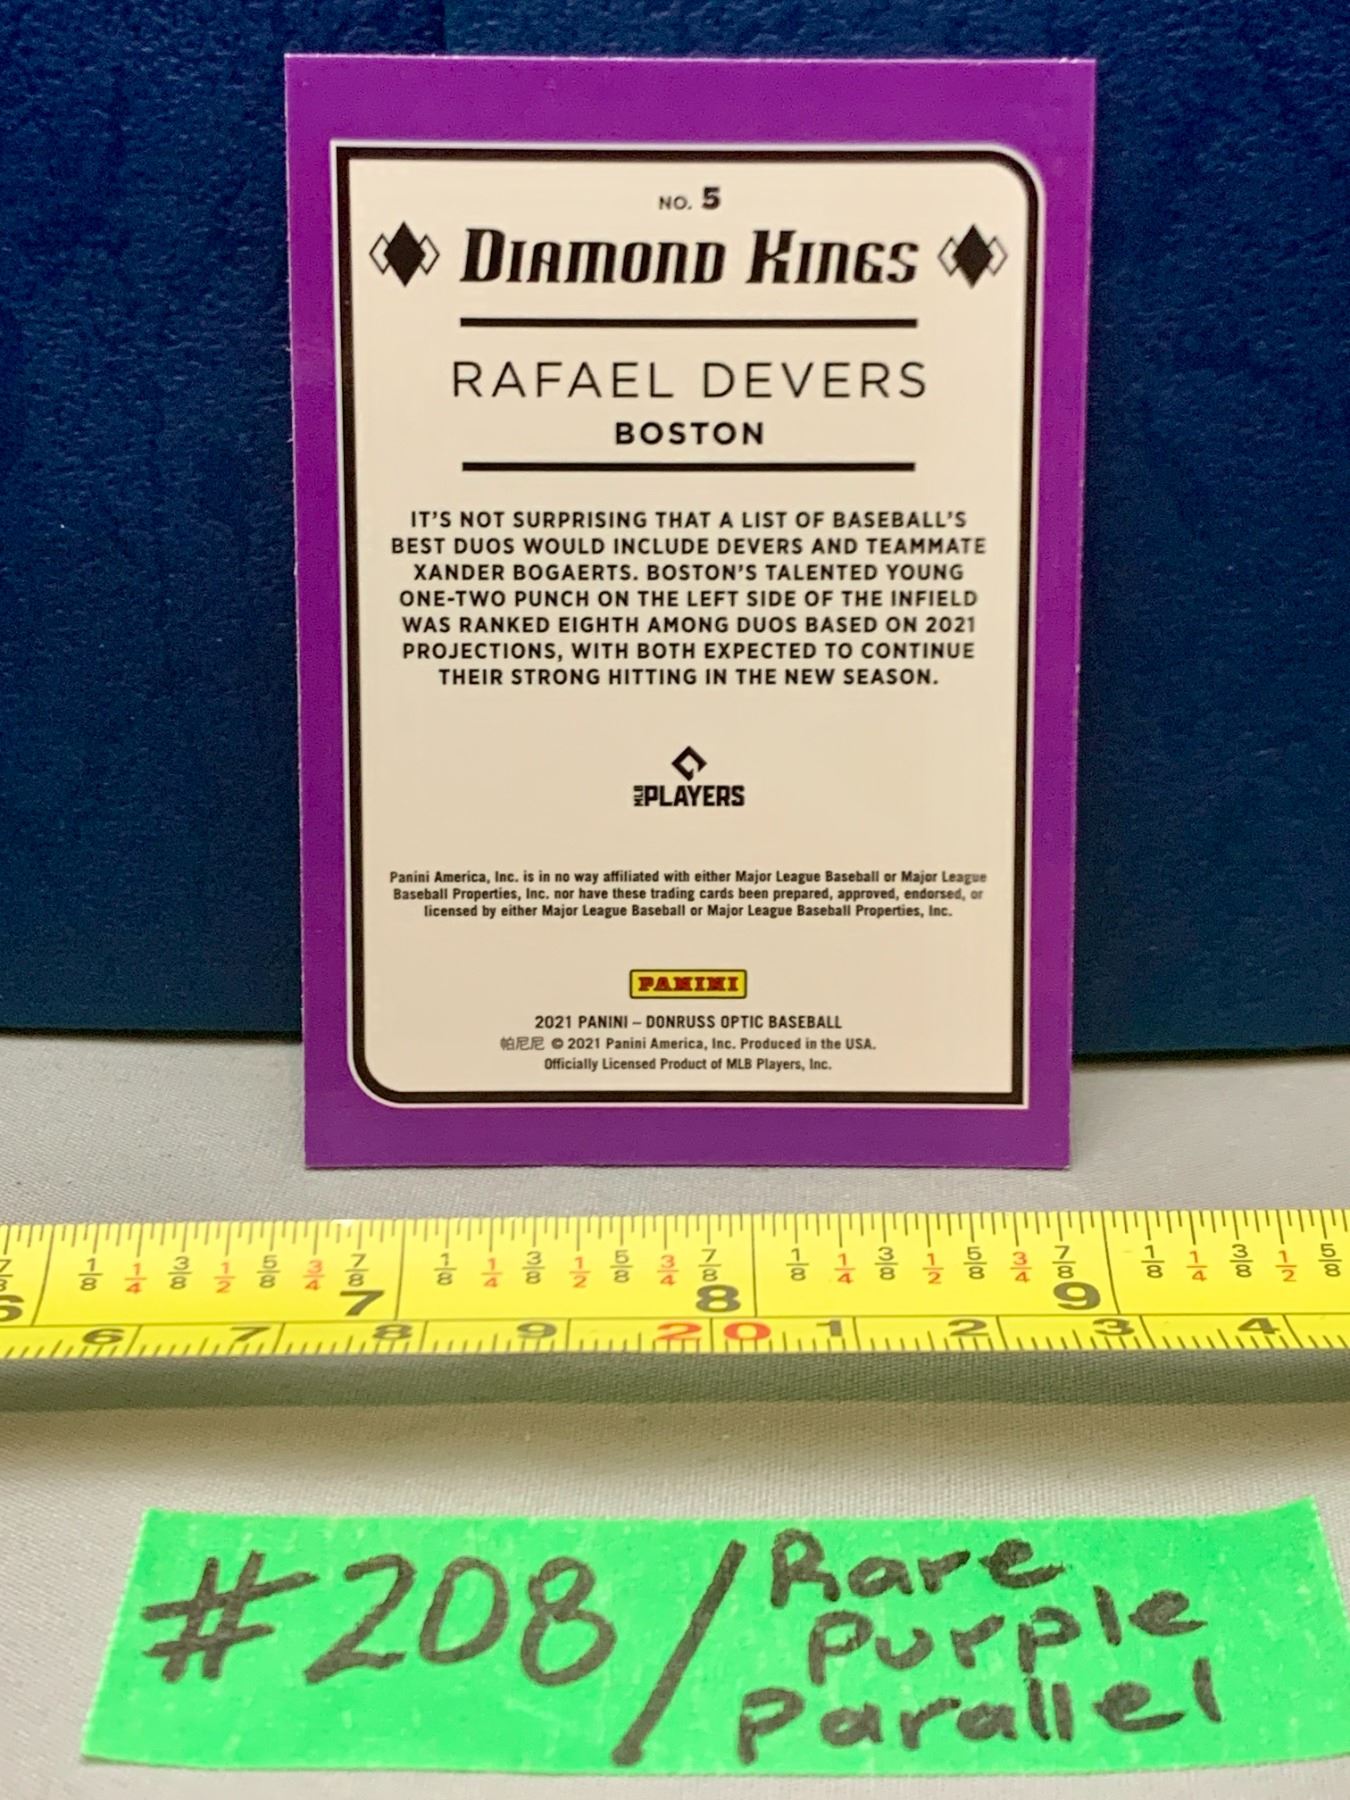 NO. 5
DIAMOND KINGS
RAFAEL DEVERS
BOSTON
IT'S NOT SURPRISING THAT A LIST OF BASEBALL'S
BEST DUOS WOULD INCLUDE DEVERS AND TEAMMATE
XANDER BOGAERTS. BOSTON'S TALENTED YOUNG
ONE-TWO PUNCH ON THE LEFT SIDE OF THE INFIELD
WAS RANKED EIGHTH AMONG DUOS BASED ON 2021
PROJECTIONS, WITH BOTH EXPECTED TO CONTINUE
THEIR STRONG HITTING IN THE NEW SEASON.
MLB PLAYERS
Panini America, Inc. is in no way affiliated with either Major League Baseball or Major League
Baseball Properties, Inc. nor have these trading cards been prepared, approved, endorsed, or
licensed by either Major League Baseball or Major League Baseball Properties, Inc.
PANINI
2021 PANINI – DONRUSS OPTIC BASEBALL
帕尼尼 © 2021 Panini America, Inc. Produced in the USA.
Officially Licensed Product of MLB Players, Inc.
7/8 1/8 1/4 3/8 1/2 5/8 3/4 7/8 1/8 1/4 3/8 1/2 5/8 3/4 7/8 1/8 1/4 3/8 1/2 5/8 3/4 7/8 1/8 1/4 3/8 1/2 5/8
6 7 8 9
6 7 8 9 20 1 2 3 4
#208 / Rare
purple
parallel